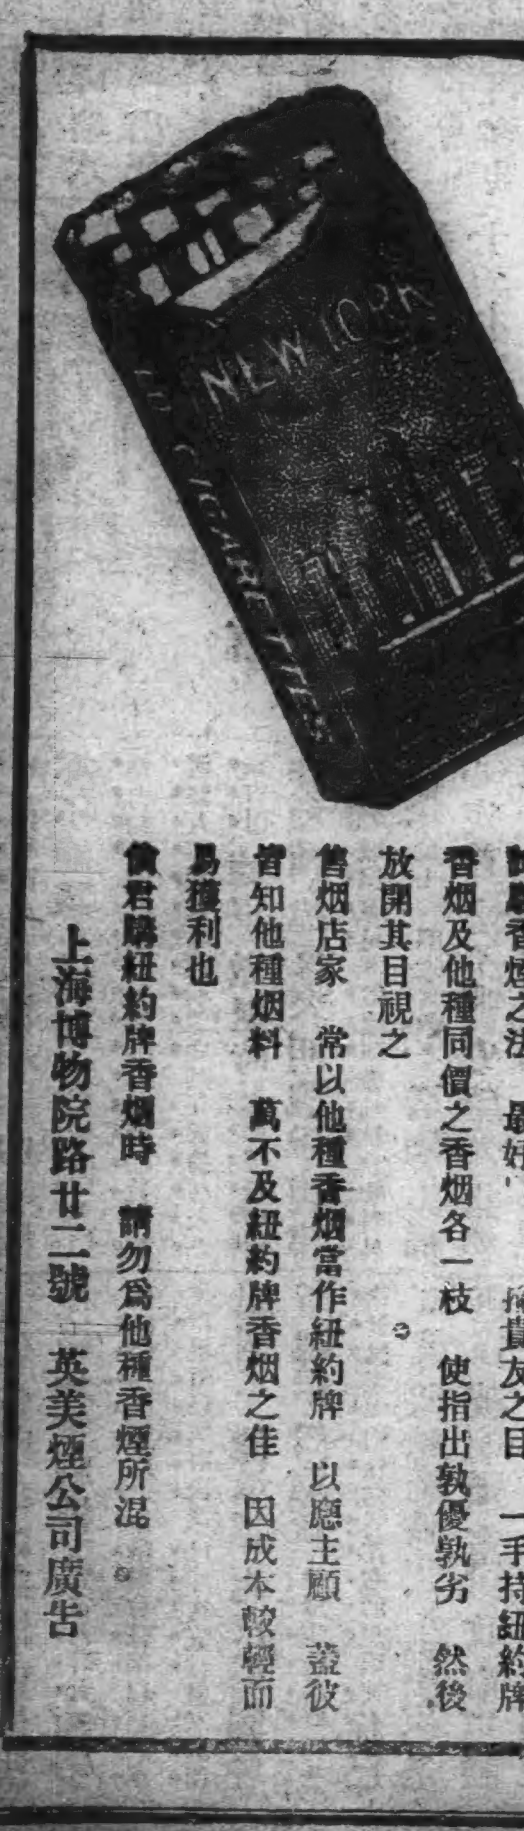 NEW YORK
CIGARETTES
試驗香煙之法 最好 掩貴友之目 一手持紐約牌
香烟及他種同價之香烟各一枝 使指出孰優孰劣 然後
放開其目視之
售烟店家 常以他種香烟當作紐約牌 以應主顧 蓋彼
皆知他種烟料 萬不及紐約牌香烟之佳 因成本較輕而
易獲利也
倘君購紐約牌香烟時 請勿爲他種香煙所混
上海博物院路廿二號 英美煙公司廣告